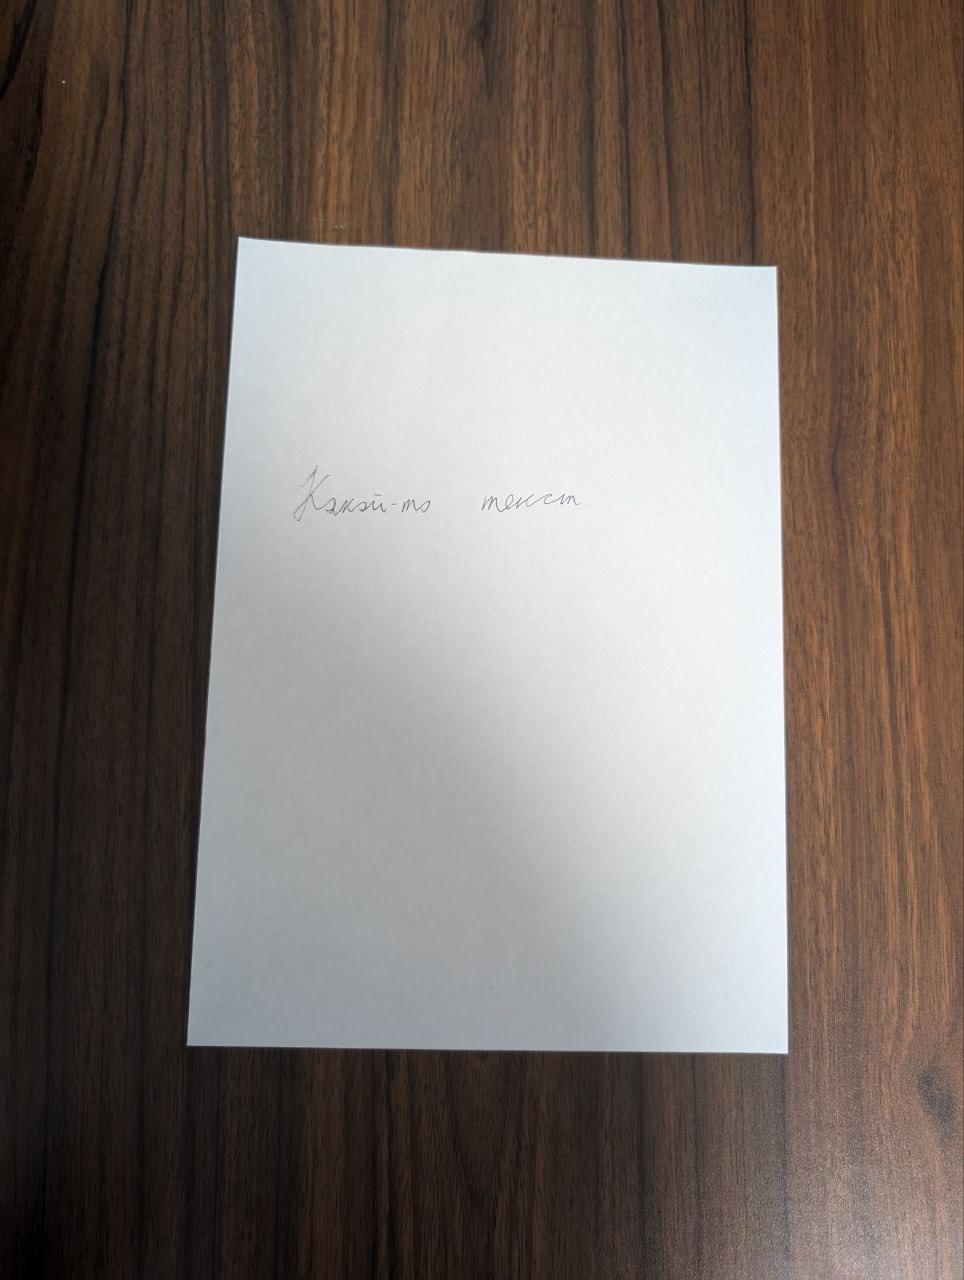 Какой-то текст